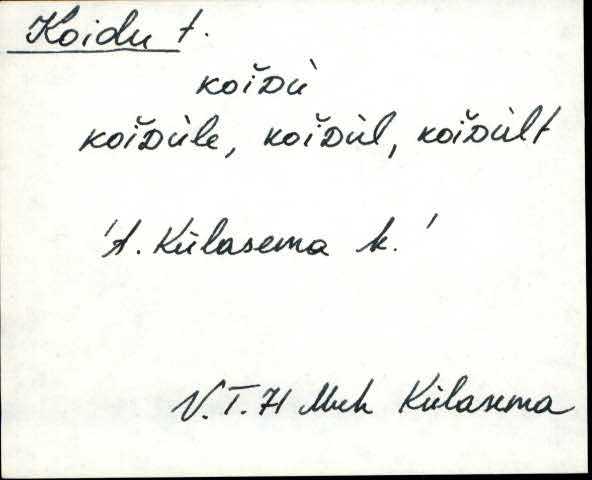 Koidu t.
koĭDù
koĭDùle, koĭDùl, koĭDùlt
'A. Külasema k.'
V.T. 71 Muh Külasema